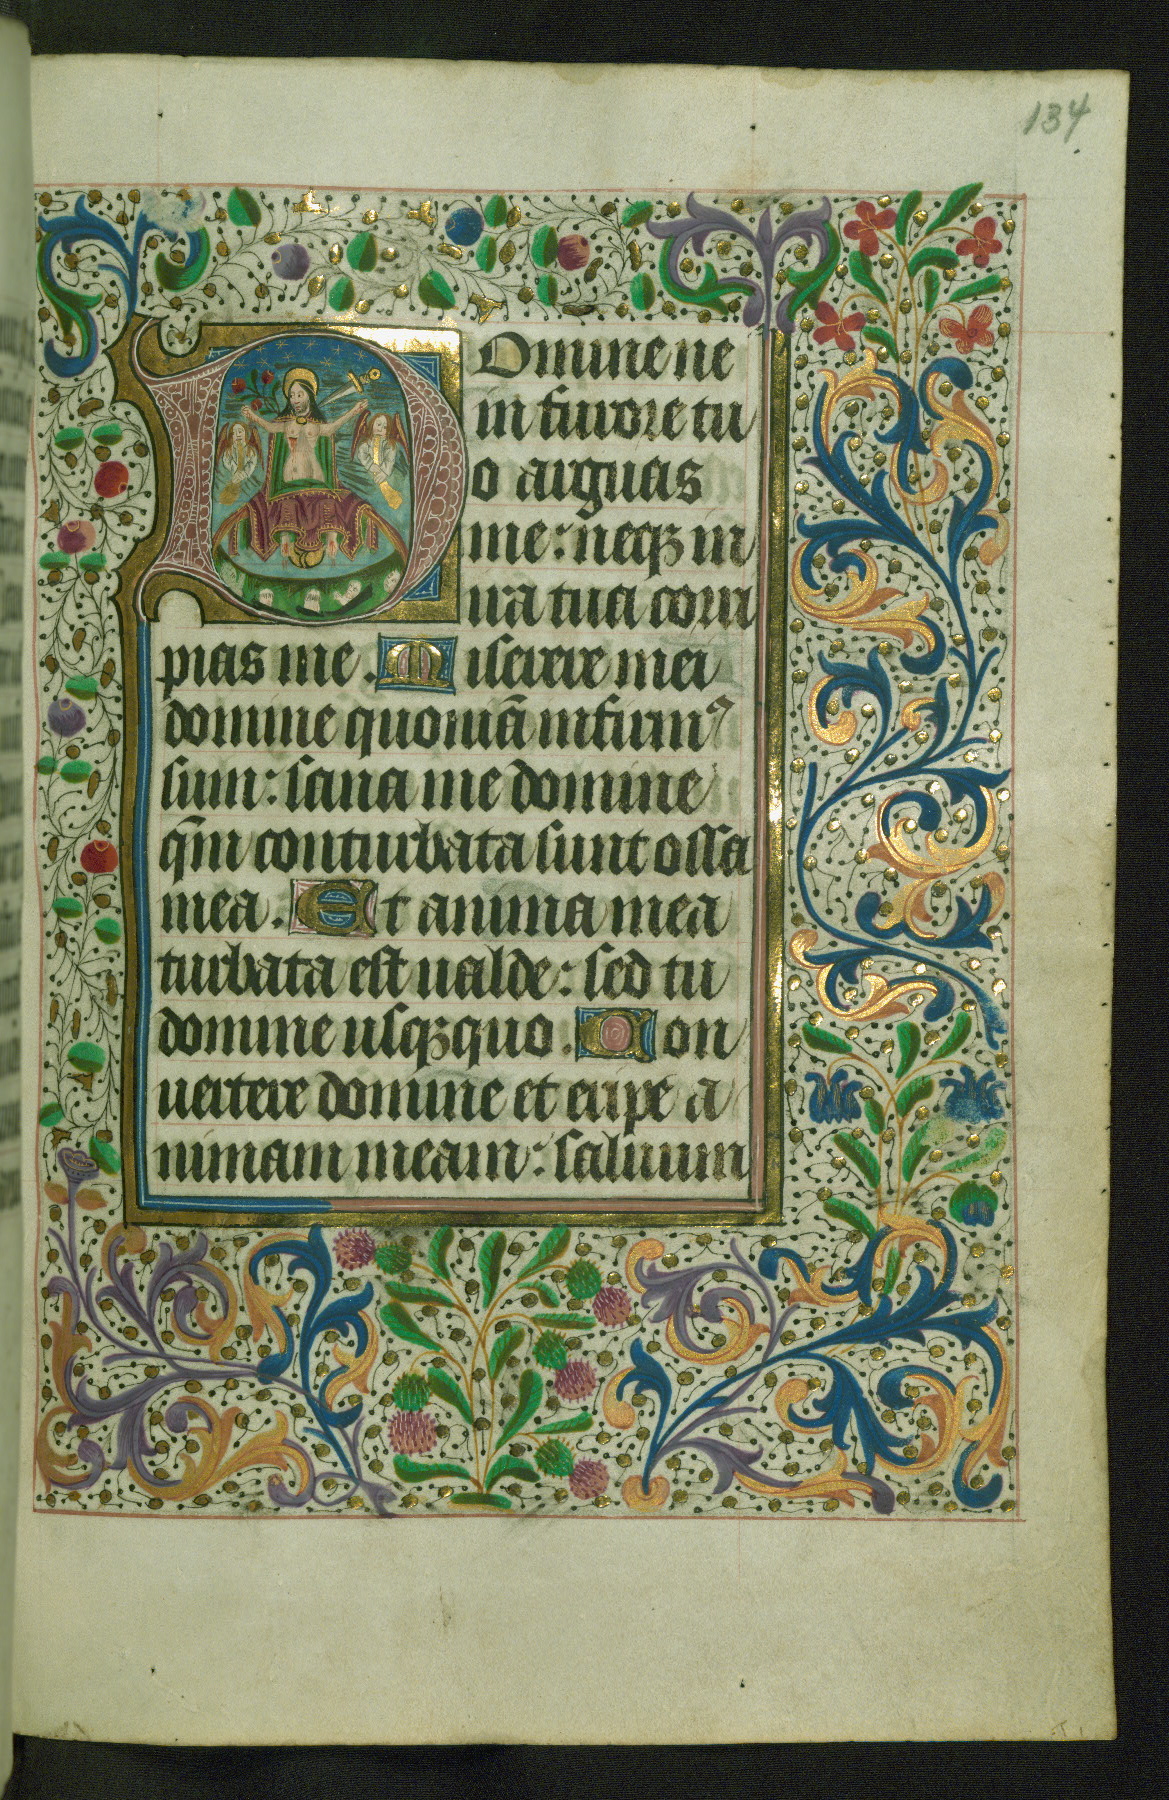 134
Domine ne
in furore tu
o arguas
me: neqꝫ in
ira tua corri
pias me. Miserere mei
domine quoniā infirmꝰ
sum: sana me domine
qm̄ conturbata sunt ossa
mea. Et anima mea
turbata est ualde: sed tu
domine usqꝫquo. Con
uertere domine et eripe a
nimam meam: saluum